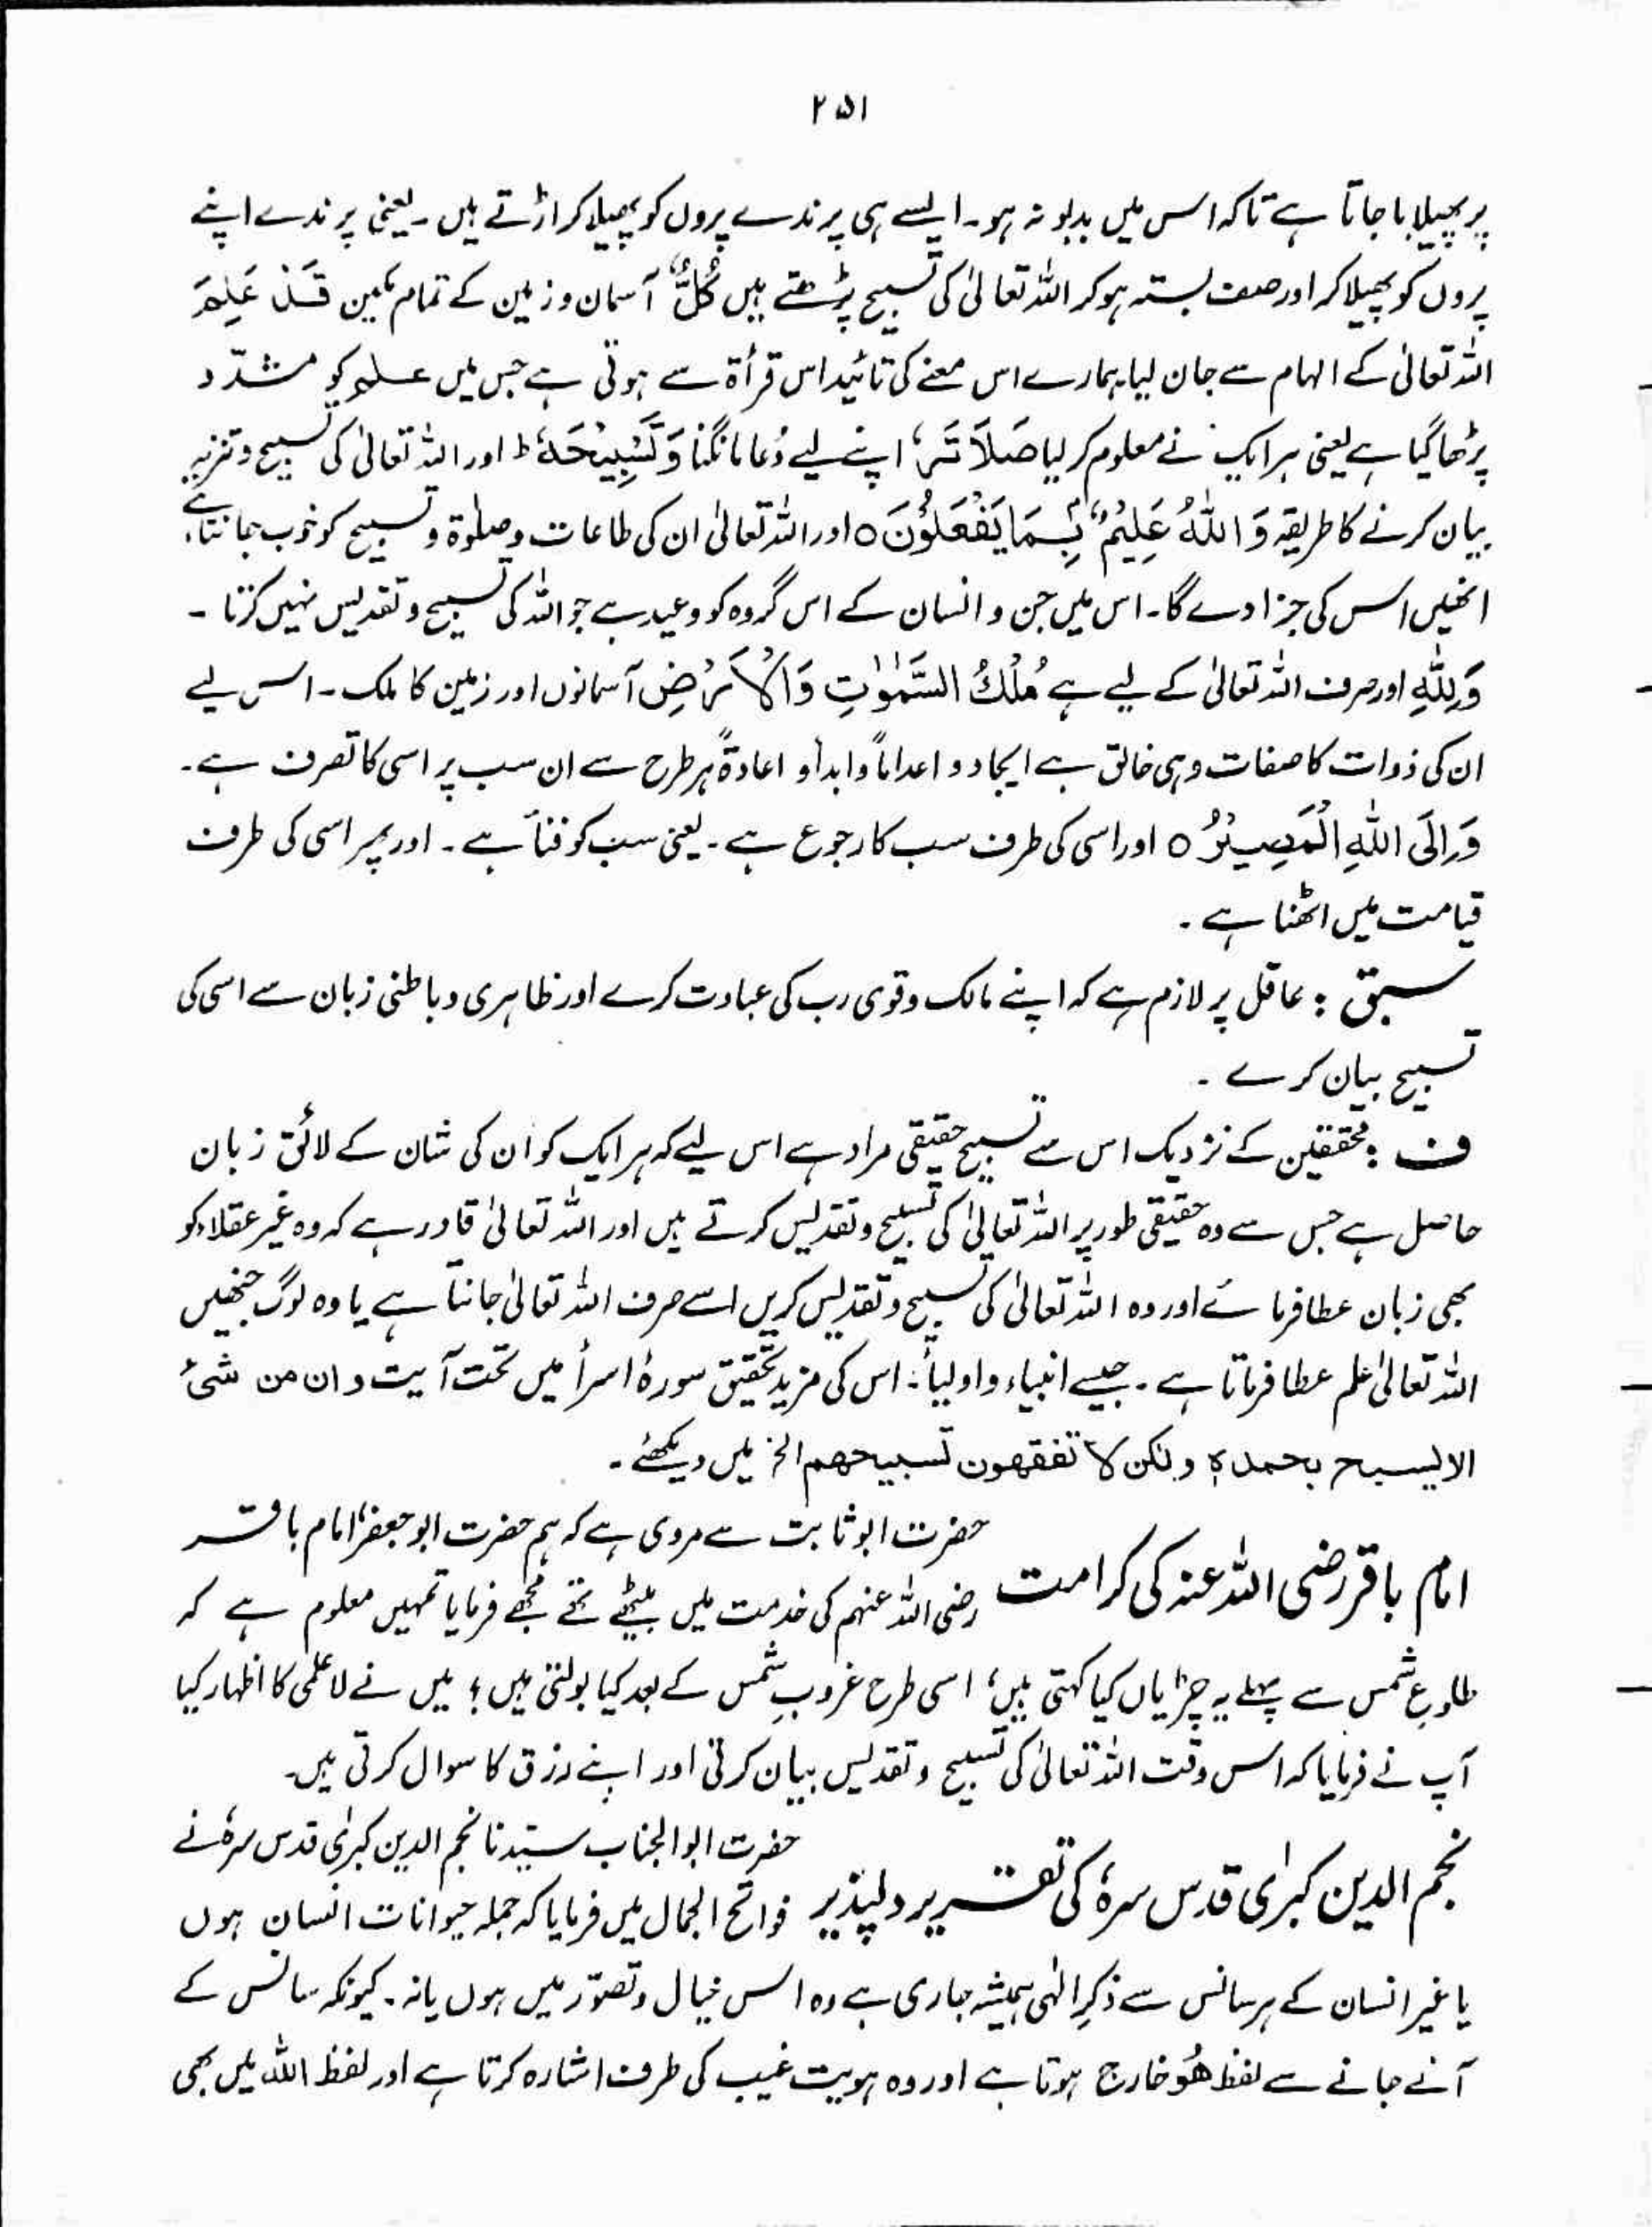 ۲۵۱
پر پھیلایا جاتا ہے تاکہ اس میں بدبو نہ ہو۔ ایسے ہی پرندے پروں کو پھیلا کر اڑتے ہیں۔ یعنی پرندے اپنے
پروں کو پھیلا کر اور صف بستہ ہو کر اللہ تعالیٰ کی تسبیح پڑھتے ہیں کُلٌّ آسمان و زمین کے تمام مکین قَدْ عَلِمَ
اللہ تعالیٰ کے الہام سے جان لیا۔ ہمارے اس معنے کی تائید اس قرأۃ سے ہوتی ہے جس میں علم کو مشدّد
پڑھا گیا ہے یعنی ہر ایک نے معلوم کر لیا صَلَاتَہٗ اپنے لیے دُعا مانگنا وَتَسْبِیْحَہٗ ط اور اللہ تعالیٰ کی تسبیح و تنزیہ
بیان کرنے کا طریقہ وَاللّٰہُ عَلِیْمٌۢ بِمَا یَفْعَلُوْنَ ○ اور اللہ تعالیٰ ان کی طاعات و صلوٰۃ و تسبیح کو خوب جانتا ہے،
انھیں اس کی جزا دے گا۔ اس میں جن و انسان کے اس گروہ کو وعید ہے جو اللہ کی تسبیح و تقدیس نہیں کرتا۔
وَلِلّٰہِ اور صرف اللہ تعالیٰ کے لیے ہے مُلْکُ السَّمٰوٰتِ وَالْاَرْضِ آسمانوں اور زمین کا ملک۔ اس لیے
ان کی ذوات کا صفات وہی خالق ہے ایجاد و اعداماً و ابداً و اعادۃً ہر طرح سے ان سب پر اسی کا تصرف ہے۔
وَاِلَی اللّٰہِ الْمَصِیْرُ ○ اور اسی کی طرف سب کا رجوع ہے۔ یعنی سب کو فنا ہے۔ اور پھر اسی کی طرف
قیامت میں اٹھنا ہے۔
سبق : عاقل پر لازم ہے کہ اپنے مالک و قوی رب کی عبادت کرے اور ظاہری و باطنی زبان سے اسی کی
تسبیح بیان کرے۔
ف : محققین کے نزدیک اس سے تسبیح حقیقی مراد ہے اس لیے کہ ہر ایک کو ان کی شان کے لائق زبان
حاصل ہے جس سے وہ حقیقی طور پر اللہ تعالیٰ کی تسبیح و تقدیس کرتے ہیں اور اللہ تعالیٰ قادر ہے کہ وہ غیر عقلاء کو
بھی زبان عطا فرمائے اور وہ اللہ تعالیٰ کی تسبیح و تقدیس کریں اسے صرف اللہ تعالیٰ جانتا ہے یا وہ لوگ جنھیں
اللہ تعالیٰ علم عطا فرماتا ہے۔ جیسے انبیاء و اولیاء۔ اس کی مزید تحقیق سورۂ اسرأ میں تحت آیت وان من شیٔ
الا یسبح بحمدہٖ ولکن لا تفقھون تسبیحھم الخ میں دیکھئے۔
امام باقر رضی اللہ عنہ کی کرامت
حضرت ابو ثابت سے مروی ہے کہ ہم حضرت ابو جعفر امام باقر
رضی اللہ عنہم کی خدمت میں بیٹھے تھے مجھے فرمایا تمہیں معلوم ہے کہ
طلوعِ شمس سے پہلے یہ چڑیاں کیا کہتی ہیں، اسی طرح غروبِ شمس کے بعد کیا بولتی ہیں؛ میں نے لاعلمی کا اظہار کیا
آپ نے فرمایا کہ اس وقت اللہ تعالیٰ کی تسبیح و تقدیس بیان کرتی اور اپنے رزق کا سوال کرتی ہیں۔
نجم الدین کبریٰ قدس سرہٗ کی تقریر دلپذیر
حضرت ابو الجناب سیّدنا نجم الدین کبریٰ قدس سرہٗ نے
فواتح الجمال میں فرمایا کہ جملہ حیوانات انسان ہوں
یا غیر انسان کے ہر سانس سے ذکرِ الٰہی ہمیشہ جاری ہے وہ اس خیال و تصوّر میں ہوں یا نہ۔ کیونکہ سانس کے
آنے جانے سے لفظ ھُو خارج ہوتا ہے اور وہ ہویت غیب کی طرف اشارہ کرتا ہے اور لفظ اللہ میں بھی